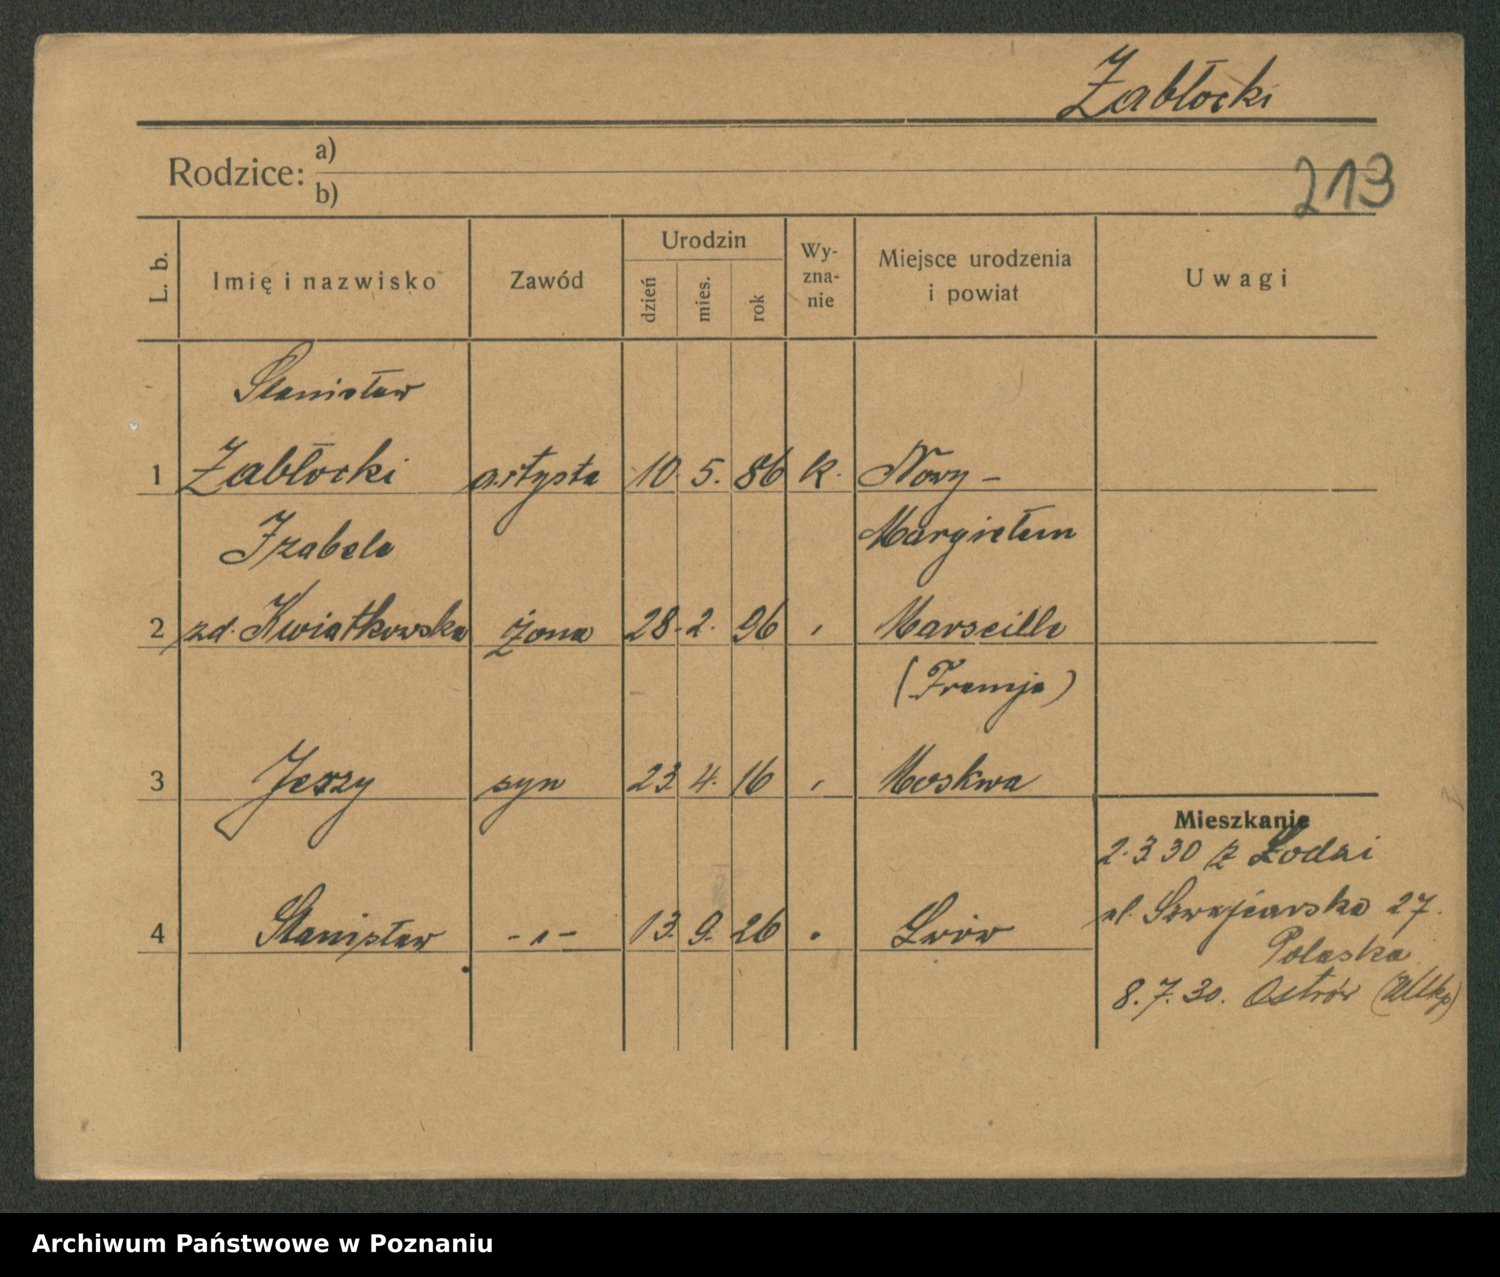 Żabłocki
Rodzice: a)
b)
213
L. b. Imię i nazwisko Zawód Urodzin dzień mies. rok Wy-zna-nie Miejsce urodzenia i powiat Uwagi
Stanisław
1 Żabłocki artysta 10. 5. 86 k. Nowy -
Izabela Margietem
2 zd. Kwiatkowska żona 28. 2. 96 " Marseille
(Francja)
3 Jerzy syn 23. 4. 16 " Moskwa
Mieszkanie
2.3.30 z Łodzi
ul. 27.
4 Stanisław -"- 13. 9. 26 " Lwów
8.7.30. Ostrów (Wlkp)
Archiwum Państwowe w Poznaniu